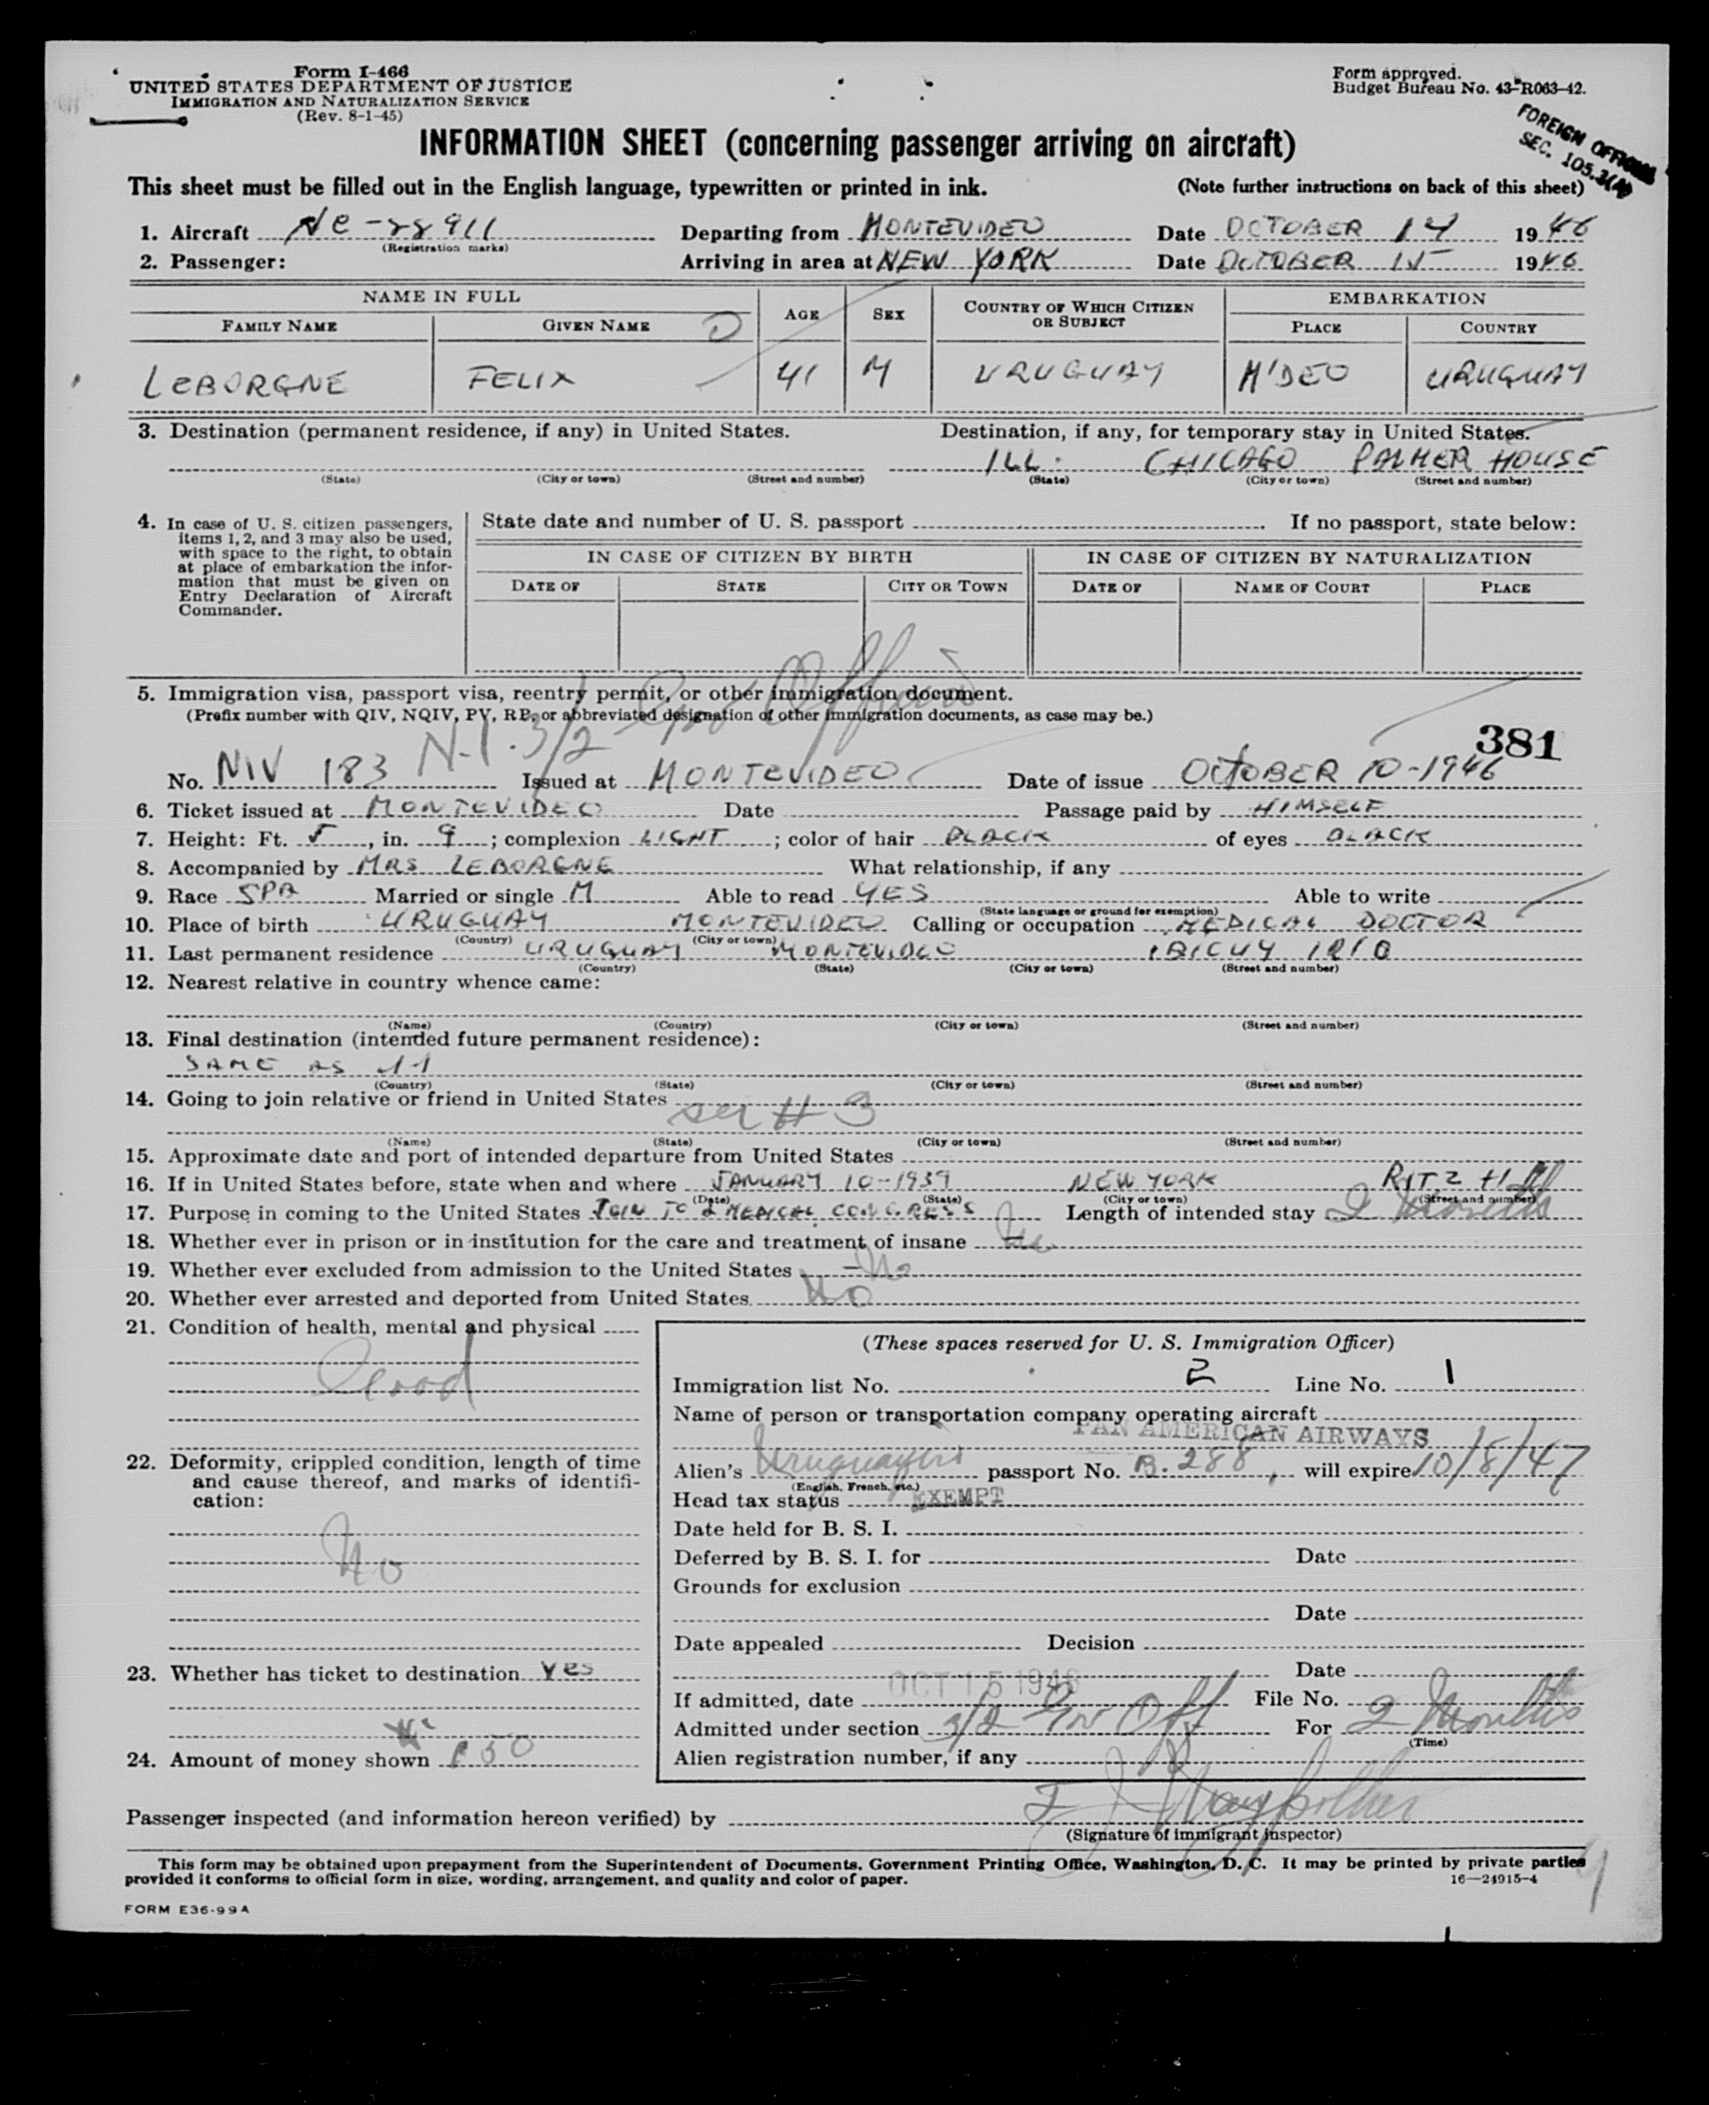 Form I-466
UNITED STATES DEPARTMENT OF JUSTICE
IMMIGRATION AND NATURALIZATION SERVICE
(Rev. 8-1-45)
Form approved.
Budget Bureau No. 43-R063-42.
FOREIGN OFFICIALS
SEC. 105.3(A)
INFORMATION SHEET (concerning passenger arriving on aircraft)
This sheet must be filled out in the English language, typewritten or printed in ink. (Note further instructions on back of this sheet)
1. Aircraft NC-88911 Departing from MONTEVIDEO Date OCTOBER 14 1946
(Registration marks)
2. Passenger: Arriving in area at NEW YORK Date OCTOBER 15 1946
NAME IN FULL AGE SEX COUNTRY OF WHICH CITIZEN OR SUBJECT EMBARKATION
FAMILY NAME GIVEN NAME PLACE COUNTRY
LEBORGNE FELIX 41 M URUGUAY M'DEO URUGUAY
3. Destination (permanent residence, if any) in United States. Destination, if any, for temporary stay in United States.
ILL. CHICAGO PALMER HOUSE
(State) (City or town) (Street and number) (State) (City or town) (Street and number)
4. In case of U. S. citizen passengers, items 1, 2, and 3 may also be used, with space to the right, to obtain at place of embarkation the information that must be given on Entry Declaration of Aircraft Commander.
State date and number of U. S. passport If no passport, state below:
IN CASE OF CITIZEN BY BIRTH IN CASE OF CITIZEN BY NATURALIZATION
DATE OF STATE CITY OR TOWN DATE OF NAME OF COURT PLACE
5. Immigration visa, passport visa, reentry permit, or other immigration document.
(Prefix number with QIV, NQIV, PV, RP, or abbreviated designation of other immigration documents, as case may be.)
N-I. 3/2 Gov Official
381
No. NIV 183 Issued at MONTEVIDEO Date of issue OCTOBER 10-1946
6. Ticket issued at MONTEVIDEO Date Passage paid by HIMSELF
7. Height: Ft. 5, in. 9; complexion LIGHT; color of hair BLACK of eyes BLACK
8. Accompanied by MRS LEBORGNE What relationship, if any
9. Race SPA Married or single M Able to read YES Able to write
(State language or ground for exemption)
10. Place of birth URUGUAY MONTEVIDEO Calling or occupation MEDICAL DOCTOR
(Country) (City or town)
11. Last permanent residence URUGUAY MONTEVIDEO IBICUY 1210
(Country) (State) (City or town) (Street and number)
12. Nearest relative in country whence came:
(Name) (Country) (City or town) (Street and number)
13. Final destination (intended future permanent residence):
SAME AS 11
(Country) (State) (City or town) (Street and number)
14. Going to join relative or friend in United States
see # 3
(Name) (State) (City or town) (Street and number)
15. Approximate date and port of intended departure from United States
16. If in United States before, state when and where JANUARY 10-1939 NEW YORK RITZ
(Date) (State) (City or town) (Street and number)
17. Purpose in coming to the United States JOIN TO MEDICAL CONGRESS Length of intended stay 2 Months
18. Whether ever in prison or in institution for the care and treatment of insane No
19. Whether ever excluded from admission to the United States No
20. Whether ever arrested and deported from United States No
21. Condition of health, mental and physical
Good
22. Deformity, crippled condition, length of time and cause thereof, and marks of identification:
No
23. Whether has ticket to destination Yes
24. Amount of money shown 150
(These spaces reserved for U. S. Immigration Officer)
Immigration list No. 2 Line No. 1
Name of person or transportation company operating aircraft
PAN AMERICAN AIRWAYS
Alien's Uruguayan passport No. B.288, will expire 10/8/47
(English, French, etc.)
Head tax status EXEMPT
Date held for B. S. I.
Deferred by B. S. I. for Date
Grounds for exclusion
Date
Date appealed Decision
Date
If admitted, date OCT 15 1946 File No.
Admitted under section 3/2 Gov Off For 2 Months
(Time)
Alien registration number, if any
Passenger inspected (and information hereon verified) by
(Signature of immigrant inspector)
This form may be obtained upon prepayment from the Superintendent of Documents, Government Printing Office, Washington, D. C. It may be printed by private parties
provided it conforms to official form in size, wording, arrangement, and quality and color of paper. 16—24915-4
FORM E36-99A